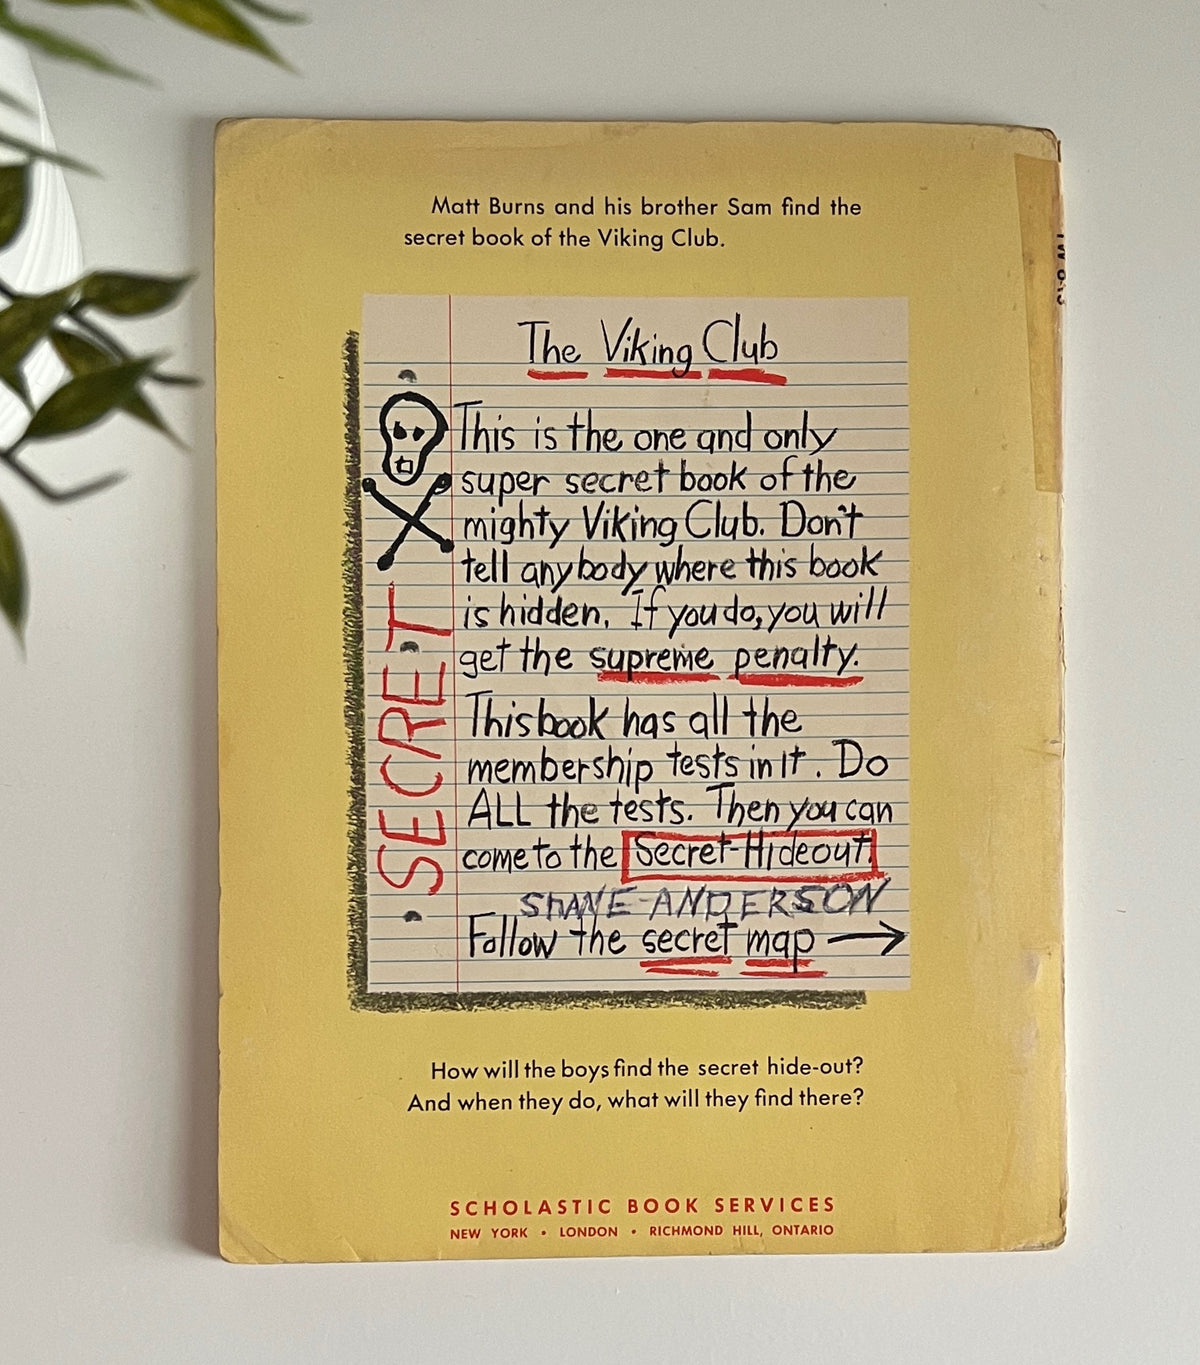 Matt Burns and his brother Sam find the
secret book of the Viking Club.
The Viking Club
This is the one and only
super secret book of the
mighty Viking Club. Don't
tell anybody where this book
is hidden. If you do, you will
get the supreme penalty.
This book has all the
membership tests in it. Do
ALL the tests. Then you can
come to the Secret-Hideout.
SHANE ANDERSON
Follow the secret map
SECRET
How will the boys find the secret hide-out?
And when they do, what will they find there?
SCHOLASTIC BOOK SERVICES
NEW YORK • LONDON • RICHMOND HILL, ONTARIO